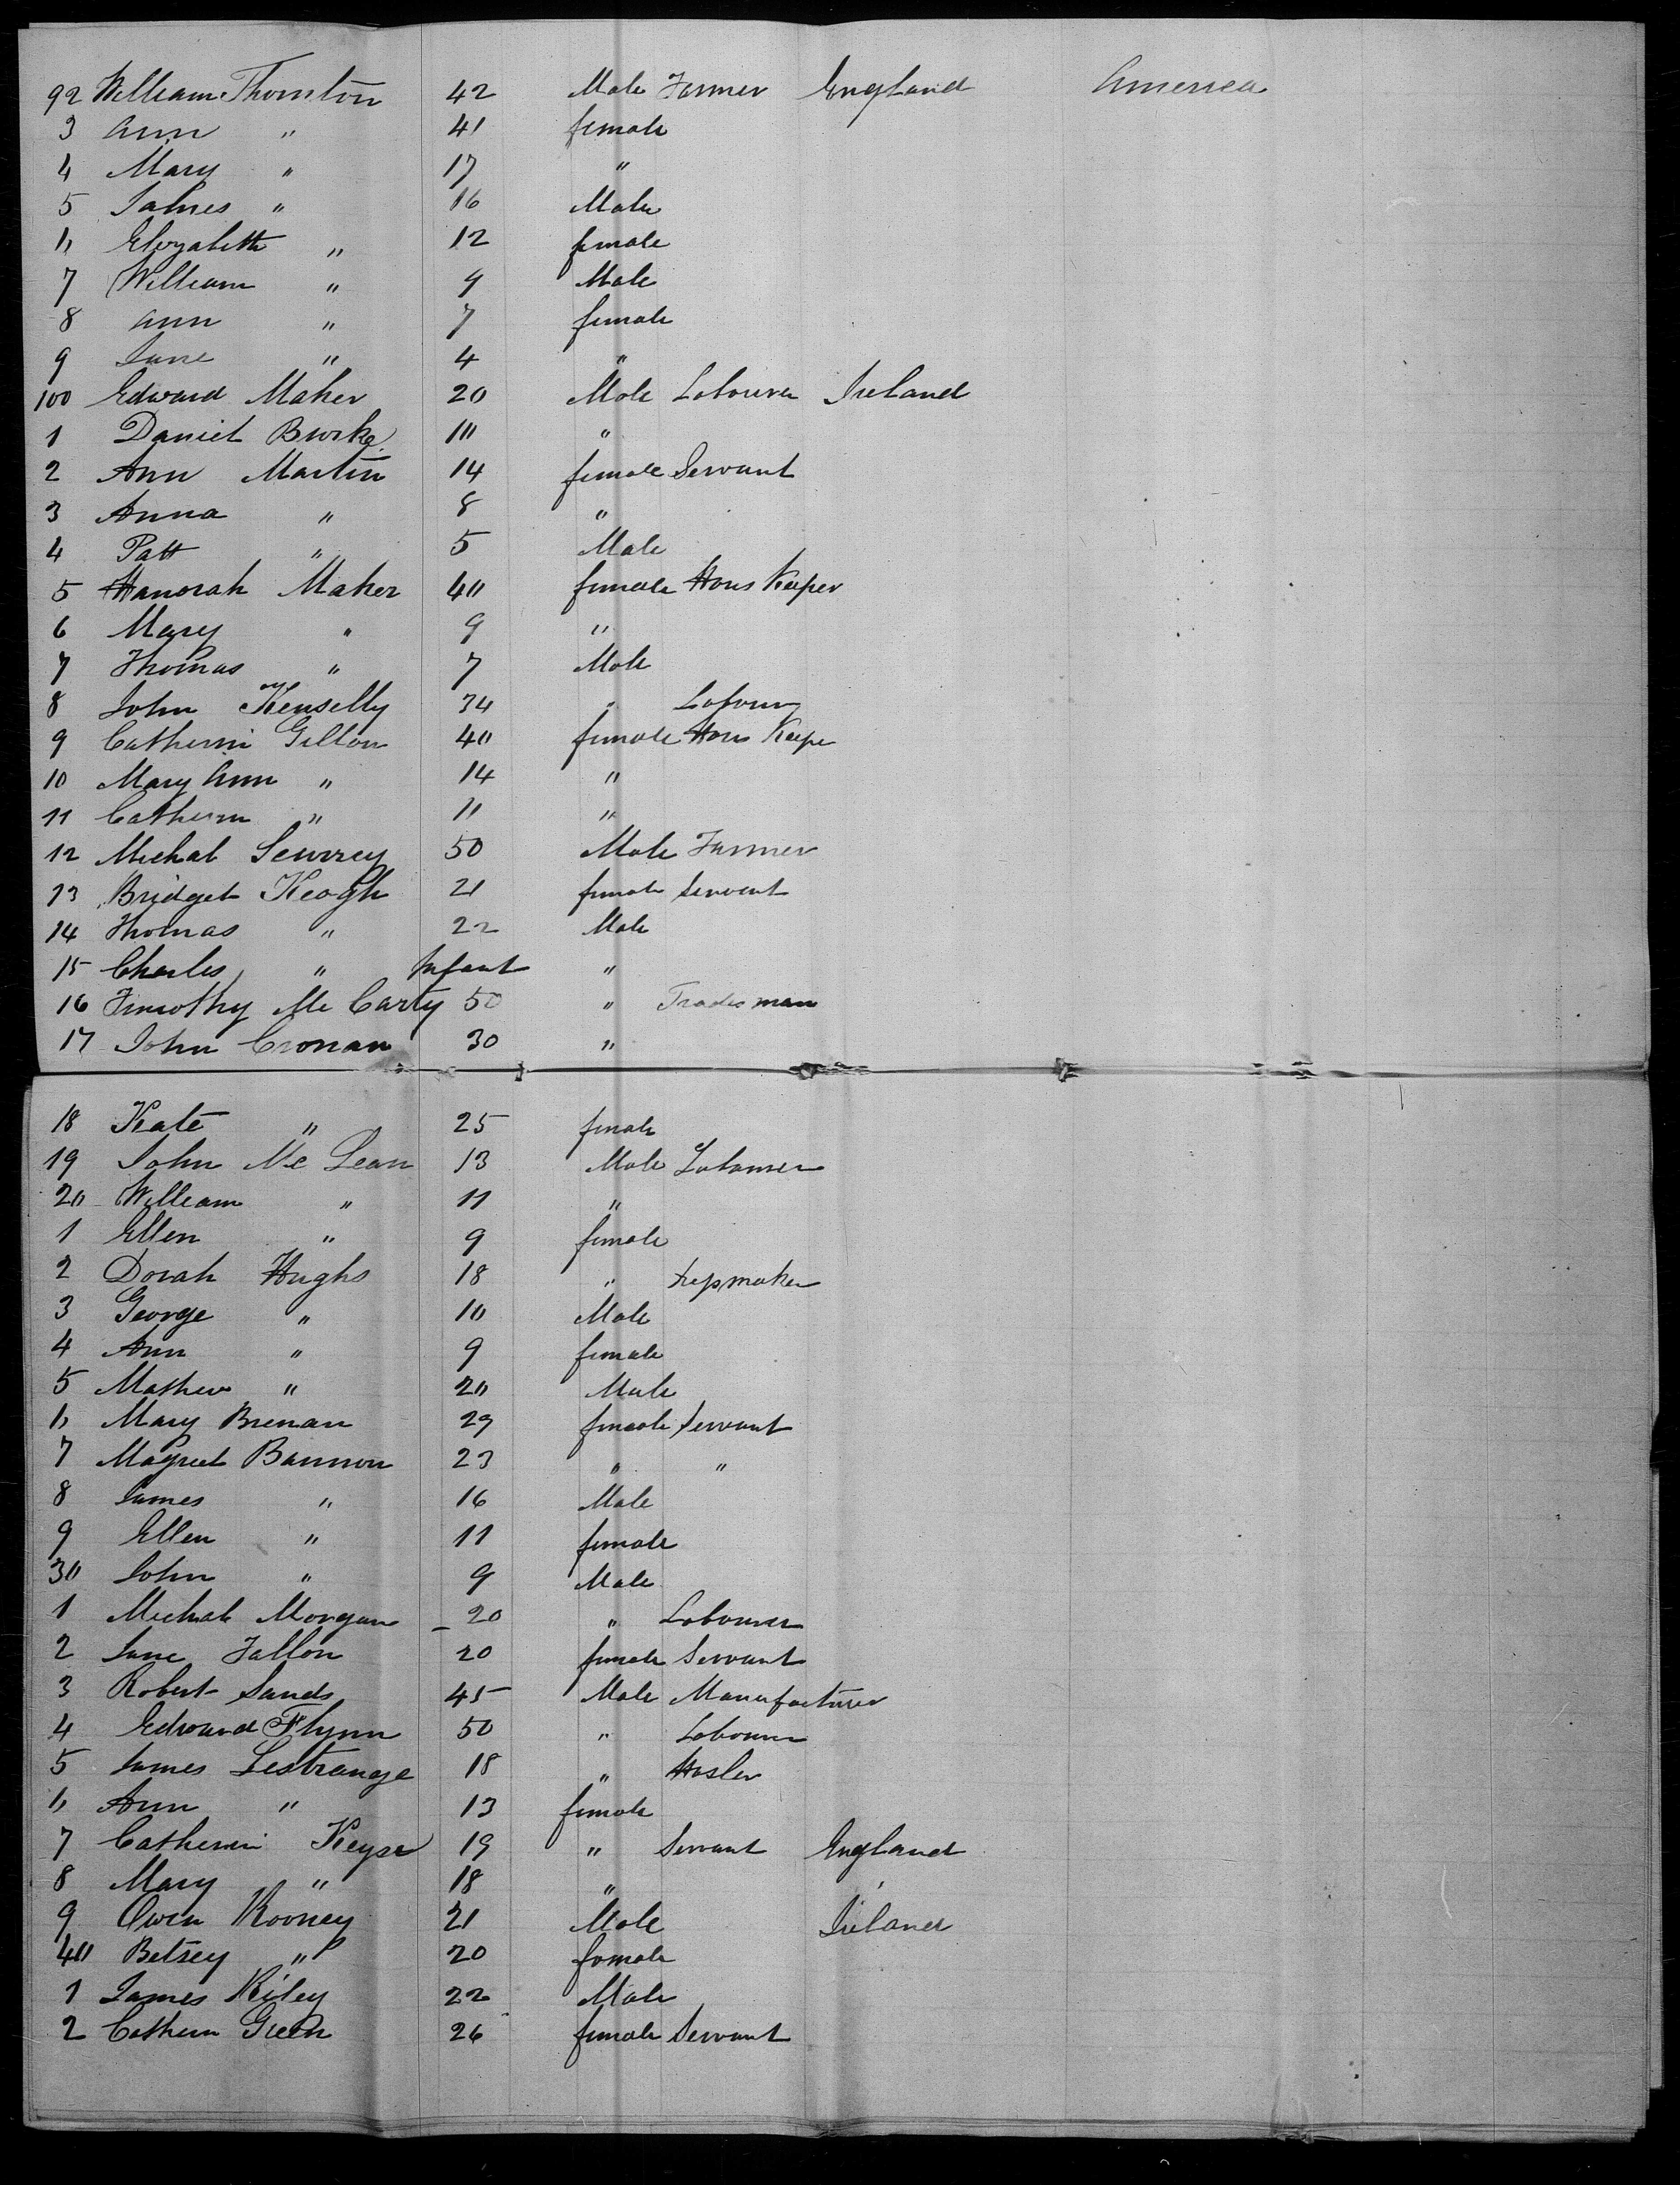 92 William Thornton 42 Male Farmer England America
3 Ann " 41 female
4 Mary " 17 "
5 James " 16 Male
" Elizabeth " 12 female
7 William " 9 Male
8 Ann " 7 female
9 Jane " 4 "
100 Edward Maher 20 Male Labourer Ireland
1 Daniel Burke 10 "
2 Ann Martin 14 female Servant
3 Anna " 8 "
4 Patt " 5 Male
5 Hanorah Maher 40 female Hous Keeper
6 Mary " 9 "
7 Thomas " 7 Male
8 John Kenselly 34 " Labour
9 Catherin Gillon 40 female Hous Keepe
10 Mary Ann " 14 "
11 Catherin " 11 "
12 Michal 50 Male Farmer
13 Bridget Keogh 21 female Servant
14 Thomas " 22 Male
15 Charles " Infant "
16 Timothy Mc Carty 50 " Trades man
17 John Cronan 30 "
18 Kate " 25 female
19 John Mc Lean 13 Male Labourer
20 William " 11 "
1 Ellen " 9 female
2 Dorah Hughs 18 "
3 George " 10 Male
4 Ann " 9 female
5 Mathew " 20 Male
" Mary Brenan 29 female Servant
7 Magret Bannon 23 " "
8 James " 16 Male
9 Ellen " 11 female
30 John " 9 Male
1 Michal Morgan 20 " Labourer
2 Jane Fallon 20 female Servant
3 Robert Sands 45 Male Manufacturer
4 Edward Flynn 50 " Labourer
5 James Lestrange 18 " Hosler
" Ann " 13 female
7 Catherin Keyse 19 " Servant England
8 Mary " 18 "
9 Owen Rooney 21 Male Ireland
40 Betsey " 20 female
1 James Riley 22 Male
2 Cathern Green 26 female Servant